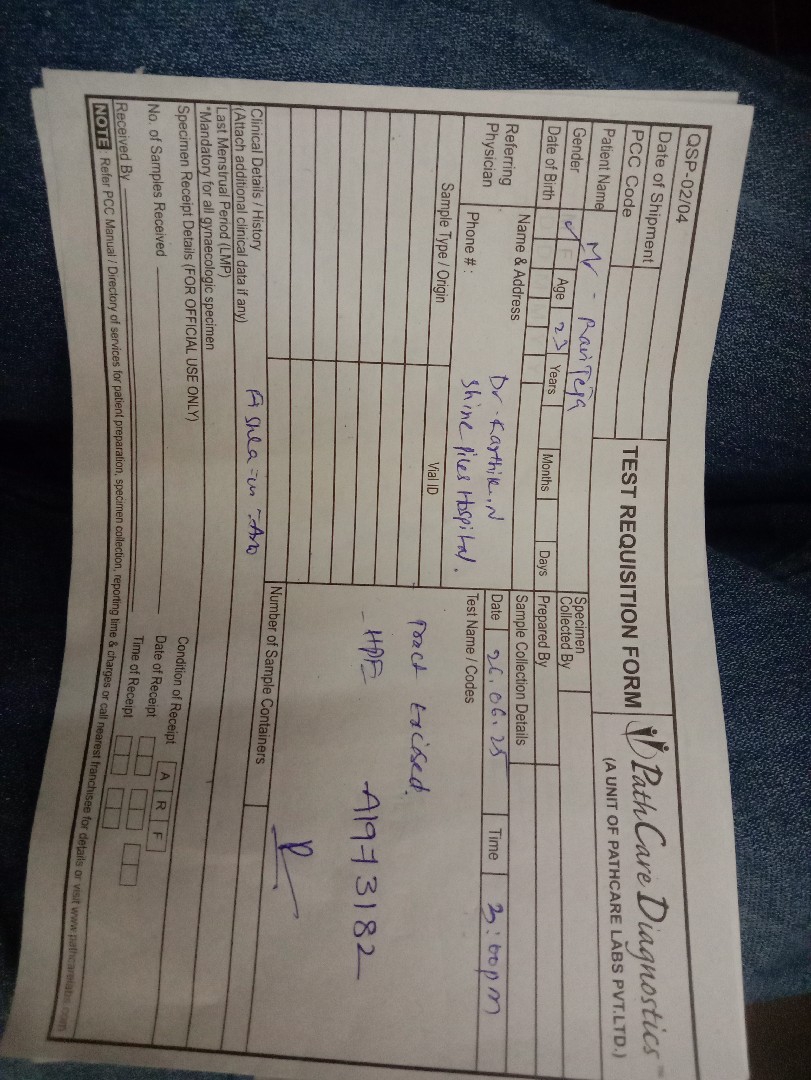 QSP-02/04
Date of Shipment
PCC Code
TEST REQUISITION FORM
PathCare Diagnostics™
(A UNIT OF PATHCARE LABS PVT.LTD.)
Patient Name Mr - Ravi Teja
Gender M F Age 23 Years Months Days
Date of Birth
Specimen Collected By
Prepared By
Referring Physician
Name & Address Dr. Karthik.N
Shine Piles Hospital.
Phone # :
Sample Collection Details
Date 26.06.25 Time 3:00pm
Sample Type / Origin Vial ID
Test Name / Codes
Tract Excised.
- HPE A1973182
Number of Sample Containers
Clinical Details / History
(Attach additional clinical data if any)
Fistula-in-Ano
Last Menstrual Period (LMP)
*Mandatory for all gynaecologic specimen
Specimen Receipt Details (FOR OFFICIAL USE ONLY)
No. of Samples Received
Condition of Receipt A R F
Date of Receipt
Received By
Time of Receipt
NOTE : Refer PCC Manual / Directory of services for patient preparation, specimen collection, reporting time & charges or call nearest franchisee for details or visit www.pathcarelabs.com